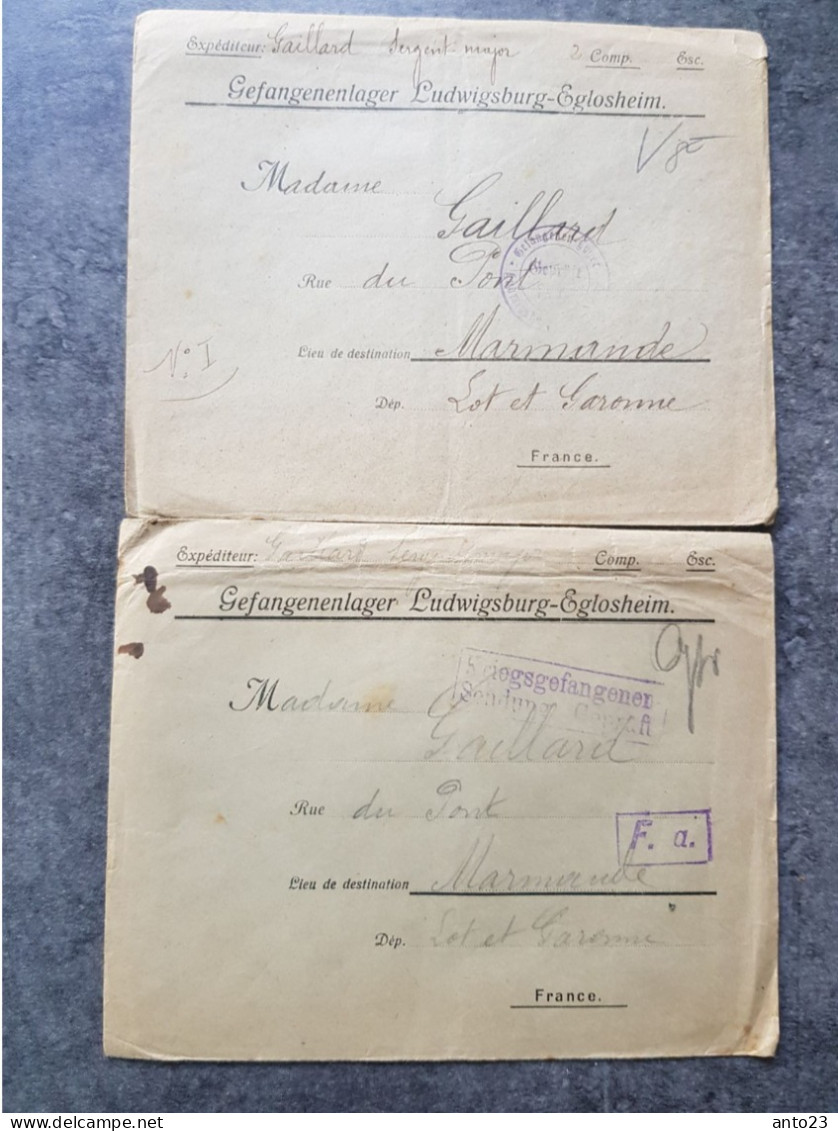 Expéditeur: Gaillard Sergent major 2 Comp. Esc.
Gefangenenlager Ludwigsburg-Eglosheim.
V
Madame
Gaillard
Rue du Pont
Lieu de destination Marmande
N° I
Dép. Lot et Garonne
France.
Expéditeur: Gaillard Sergent major Comp. Esc.
Gefangenenlager Ludwigsburg-Eglosheim.
Kriegsgefangenen
Sendung Geprüft
Madame
Gaillard
Rue du Pont
F. a.
Lieu de destination Marmande
Dép. Lot et Garonne
France.
delcampe.net
anto23